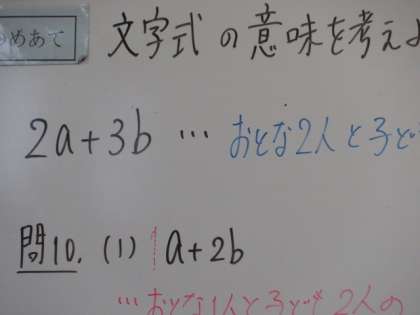 めあて 文字式の意味を考え
2a+3b … おとな2人と子ど
問10. (1) a+2b
… おとな1人と子ども2人の